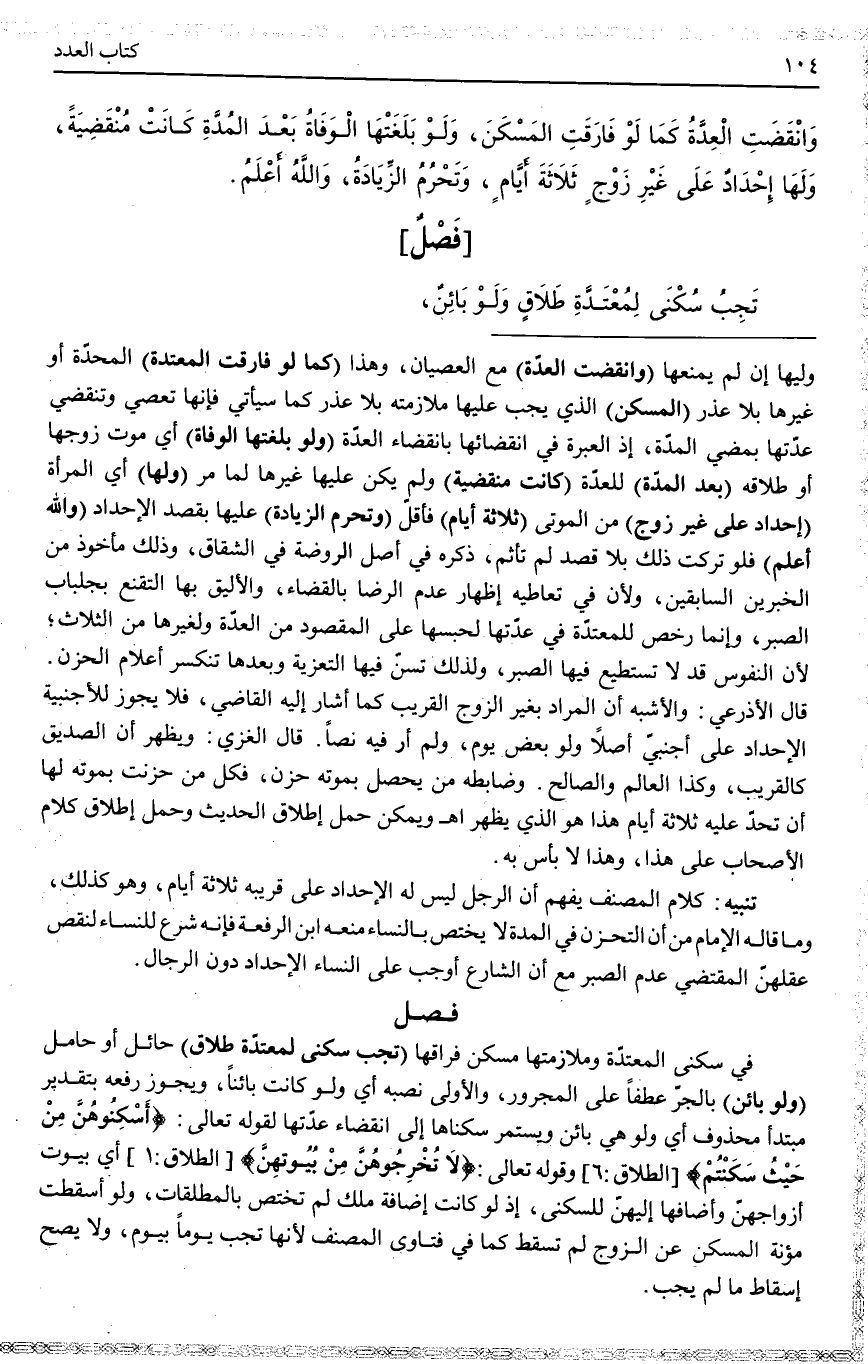 ١٠٤ كتاب العدد
وَانْقَضَتِ الْعِدَّةُ كَمَا لَوْ فَارَقَتِ المَسْكَنَ، وَلَوْ بَلَغَتْهَا الْوَفَاةُ بَعْدَ المُدَّةِ كَانَتْ مُنْقَضِيَةً،
وَلَهَا إِحْدَادٌ عَلَى غَيْرِ زَوْجٍ ثَلَاثَةَ أَيَّامٍ، وَتَحْرُمُ الزِّيَادَةُ، وَاللَّهُ أَعْلَمُ.
[فَصْلٌ]
تَجِبُ سُكْنَى لِمُعْتَدَّةِ طَلَاقٍ وَلَوْ بَائِنٌ،
وليها إن لم يمنعها (وانقضت العدّة) مع العصيان، وهذا (كما لو فارقت المعتدة) المحدّة أو
غيرها بلا عذر (المسكن) الذي يجب عليها ملازمته بلا عذر كما سيأتي فإنها تعصي وتنقضي
عدّتها بمضي المدّة، إذ العبرة في انقضائها بانقضاء العدّة (ولو بلغتها الوفاة) أي موت زوجها
أو طلاقه (بعد المدّة) للعدّة (كانت منقضية) ولم يكن عليها غيرها لما مر (ولها) أي المرأة
(إحداد على غير زوج) من الموتى (ثلاثة أيام) فأقلّ (وتحرم الزيادة) عليها بقصد الإحداد (والله
أعلم) فلو تركت ذلك بلا قصد لم تأثم، ذكره في أصل الروضة في الشقاق، وذلك مأخوذ من
الخبرين السابقين، ولأن في تعاطيه إظهار عدم الرضا بالقضاء، والأليق بها التقنع بجلباب
الصبر، وإنما رخص للمعتدّة في عدّتها لحبسها على المقصود من العدة ولغيرها من الثلاث؛
لأن النفوس قد لا تستطيع فيها الصبر، ولذلك تسنّ فيها التعزية وبعدها تنكسر أعلام الحزن.
قال الأذرعي: والأشبه أن المراد بغير الزوج القريب كما أشار إليه القاضي، فلا يجوز للأجنبية
الإحداد على أجنبيّ أصلاً ولو بعض يوم، ولم أر فيه نصاً. قال الغزي: ويظهر أن الصديق
كالقريب، وكذا العالم والصالح. وضابطه من يحصل بموته حزن، فكل من حزنت بموته لها
أن تحدّ عليه ثلاثة أيام هذا هو الذي يظهر اهـ ويمكن حمل إطلاق الحديث وحمل إطلاق كلام
الأصحاب على هذا، وهذا لا بأس به.
تنبيه: كلام المصنف يفهم أن الرجل ليس له الإحداد على قريبه ثلاثة أيام، وهو كذلك،
وما قاله الإمام من أن التحزن في المدة لا يختص بالنساء منعه ابن الرفعة فإنه شرع للنساء لنقص
عقلهنّ المقتضي عدم الصبر مع أن الشارع أوجب على النساء الإحداد دون الرجال.
فصل
في سكنى المعتدّة وملازمتها مسكن فراقها (تجب سكنى لمعتدّة طلاق) حائل أو حامل
(ولو بائن) بالجرّ عطفاً على المجرور، والأولى نصبه أي ولو كانت بائناً، ويجوز رفعه بتقدير
مبتدأ محذوف أي ولو هي بائن ويستمر سكناها إلى انقضاء عدّتها لقوله تعالى: ﴿أَسْكِنُوهُنَّ مِنْ
حَيْثُ سَكَنْتُمْ﴾ [الطلاق:٦] وقوله تعالى:﴿لَا تُخْرِجُوهُنَّ مِنْ بُيُوتِهِنَّ﴾ [الطلاق:١] أي بيوت
أزواجهنّ وأضافها إليهنّ للسكنى، إذ لو كانت إضافة ملك لم تختص بالمطلقات، ولو أسقطت
مؤنة المسكن عن الزوج لم تسقط كما في فتاوى المصنف لأنها تجب يوماً بيوم، ولا يصح
إسقاط ما لم يجب.